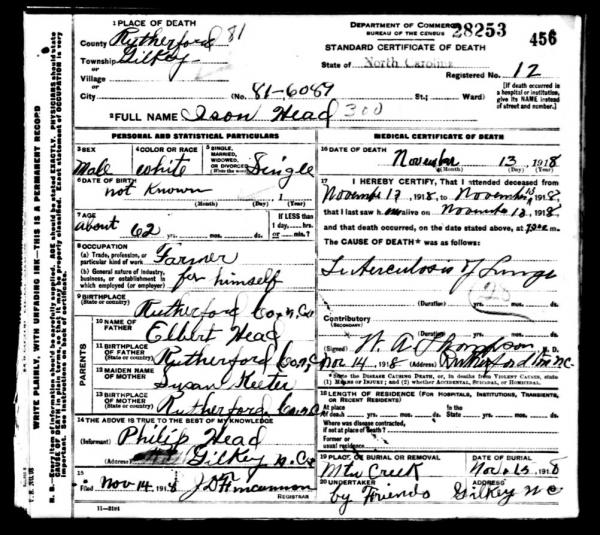 1 PLACE OF DEATH
County Rutherford 81
Township Gilkey
or
Village
or
City (No. 81-6089 St.; Ward)
DEPARTMENT OF COMMERCE
BUREAU OF THE CENSUS 28253 456
STANDARD CERTIFICATE OF DEATH
State of North Carolina
Registered No. 12
[If death occurred in
a hospital or institution,
give its NAME instead
of street and number.]
2 FULL NAME Ison Head 300
PERSONAL AND STATISTICAL PARTICULARS
3 SEX
Male
4 COLOR OR RACE
white
5 SINGLE,
MARRIED,
WIDOWED,
OR DIVORCED
(Write the word)
Single
6 DATE OF BIRTH
not Known
(Month) (Day) (Year)
7 AGE
about 62
yrs. mos. ds.
If LESS than
1 day, hrs.
or min.?
8 OCCUPATION
(a) Trade, profession, or
particular kind of work Farmer
(b) General nature of industry,
business, or establishment in
which employed (or employer) for himself
9 BIRTHPLACE
(State or country) Rutherford Co, N.C.
PARENTS
10 NAME OF
FATHER Elbert Head
11 BIRTHPLACE
OF FATHER
(State or country) Rutherford Co, N.C.
12 MAIDEN NAME
OF MOTHER Susan Keeter
13 BIRTHPLACE
OF MOTHER
(State or country) Rutherford Co, N.C.
14 THE ABOVE IS TRUE TO THE BEST OF MY KNOWLEDGE
(Informant) Philip Head
(Address) Gilkey N.C.
15
Filed Nov 14, 1918 J D
REGISTRAR
11-3184
MEDICAL CERTIFICATE OF DEATH
16 DATE OF DEATH
November 13, 1918
(Month) (Day) (Year)
17 I HEREBY CERTIFY, That I attended deceased from
1918, to 1918,
that I last saw h alive on November 1918,
and that death occurred, on the date stated above, at m.
The CAUSE OF DEATH* was as follows:
Tuberculosis of Lungs
(Duration) yrs. mos. ds.
Contributory
(SECONDARY)
(Duration) yrs. mos. ds.
(Signed) W. A. Thompson M. D.
Nov 14, 1918 (Address) Rutherfordton NC
* State the DISEASE CAUSING DEATH, or, in deaths from VIOLENT CAUSES, state
(1) MEANS OF INJURY; and (2) whether ACCIDENTAL, SUICIDAL, or HOMICIDAL.
18 LENGTH OF RESIDENCE (FOR HOSPITALS, INSTITUTIONS, TRANSIENTS,
OR RECENT RESIDENTS)
At place
of death yrs. mos. ds.
In the
State yrs. mos. ds.
Where was disease contracted,
if not at place of death?
Former or
usual residence
19 PLACE OF BURIAL OR REMOVAL
Mtn Creek
DATE OF BURIAL
Nov 1918
20 UNDERTAKER
by Friends
ADDRESS
Gilkey N C
WRITE PLAINLY, WITH UNFADING INK—THIS IS A PERMANENT RECORD
N. B.—Every item of information should be carefully supplied. AGE should be stated EXACTLY. PHYSICIANS should state
CAUSE OF DEATH in plain terms, so that it may be properly classified. Exact statement of OCCUPATION is very
important. See instructions on back of certificate.